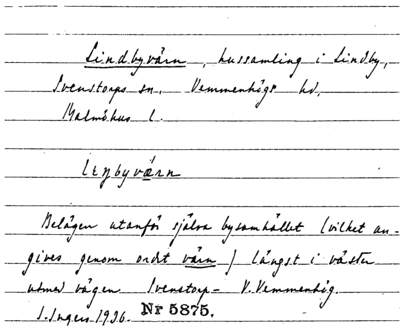 Lindbyvärn, hussamling i Lindby,
Svenstorps sn, Vemmenhögs hd,
Malmöhus l.
leŋbyværn
Belägen utanför själva bysamhället (vilket an-
gives genom ordt värn) längst i väster
utmed vägen Svenstorp - V. Vemmenhög.
I. Ingers. 1936. Nr 5875.